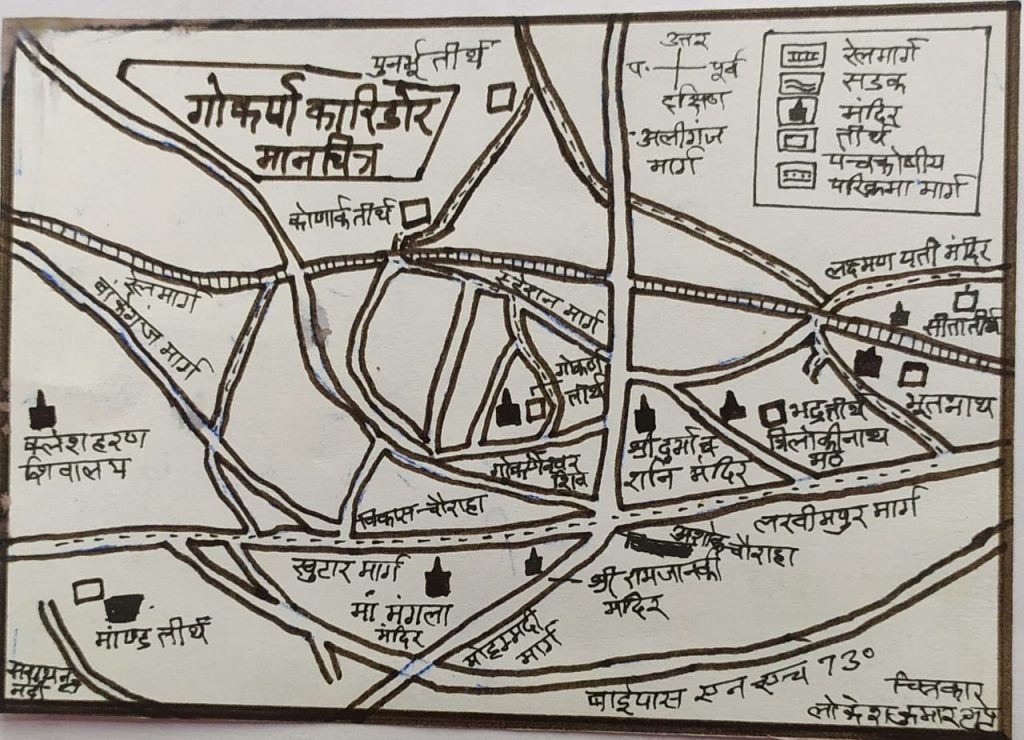 पुनर्भू तीर्थ
गोकर्ण कारिडोर
मानचित्र
उत्तर
प. पूर्व
दक्षिण
अलीगंज
मार्ग
रेलमार्ग
सडक
मंदिर
तीर्थ
पन्चकोषीय
परिक्रमा मार्ग
कोणार्क तीर्थ
लक्ष्मण यती मंदिर
सीतातीर्थ
रेलमार्ग
बांकेगंज मार्ग
स्टेशन मार्ग
गोकर्ण
तीर्थ
भूतनाथ
भद्रतीर्थ
त्रिलोकीनाथ
मठ
श्री दुर्गा व
शनि मंदिर
गोकर्णेश्वर
शिव
क्लेश हरण
शिवालय
विकास चौराहा
लखीमपुर मार्ग
अशोक चौराहा
खुटार मार्ग
श्री रामजानकी
मंदिर
मां मंगला
मंदिर
मोहम्मदी
मार्ग
माण्ड तीर्थ
नदी
बाईपास एन एच 730
चित्रकार
लोकेश कुमार गुप्त